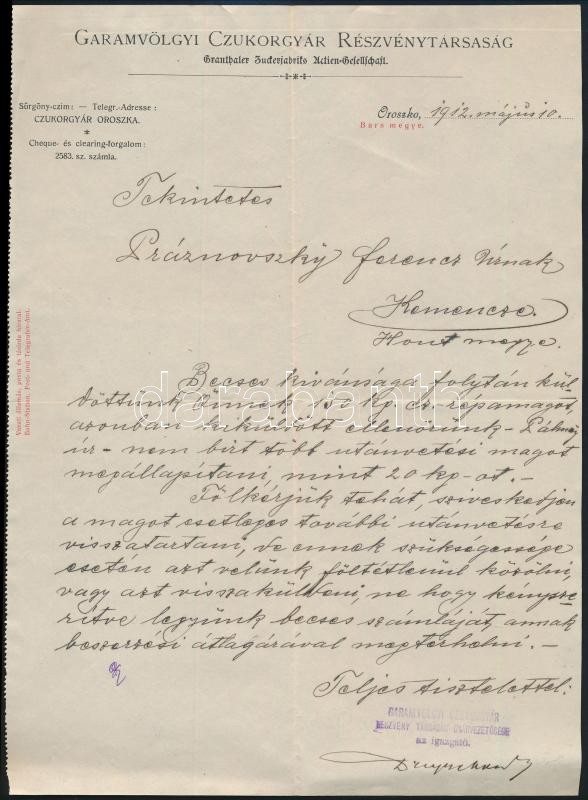 GARAMVÖLGYI CZUKORGYÁR RÉSZVÉNYTÁRSASÁG
Granthaler Zuckerfabriks Actien-Gesellschaft.
Sürgöny-czim: — Telegr.-Adresse:
CZUKORGYÁR OROSZKA.
*
Cheque- és clearing-forgalom:
2583. sz. számla.
Oroszko, 1912. május 10.
Bars megye.
Tekintetes
Práznovszky Ferencz Úrnak
Kemencze.
Hont megye.
Becses kivánsága folytán kül-
döttünk Önnek 50 Kg cz. répamagot,
azonban kiküldött ellenőrünk - Pálmay
úr - nem birt több utánvetési magot
megállapitani, mint 20 kg-ot. -
Fölkérjük tehát, sziveskedjen
a magot esetleges további utánvetésre
visszatartani, de ennek szükségessége
esetén azt velünk föltétlenül közölni,
vagy azt visszaküldeni, ne hogy kénysze-
rítve legyünk becses számláját, annak
beszerzési átlagárával megterhelni. -
Teljes tisztelettel:
GARAMVÖLGYI CZUKORGYÁR
RÉSZVÉNY TÁRSASÁG GYÁRVEZETŐSÉGE
az igazgató.
Vasuti állomás, posta és távirda hivatal.
Bahn-Station, Post- und Telegrafen-Amt.
darabanth